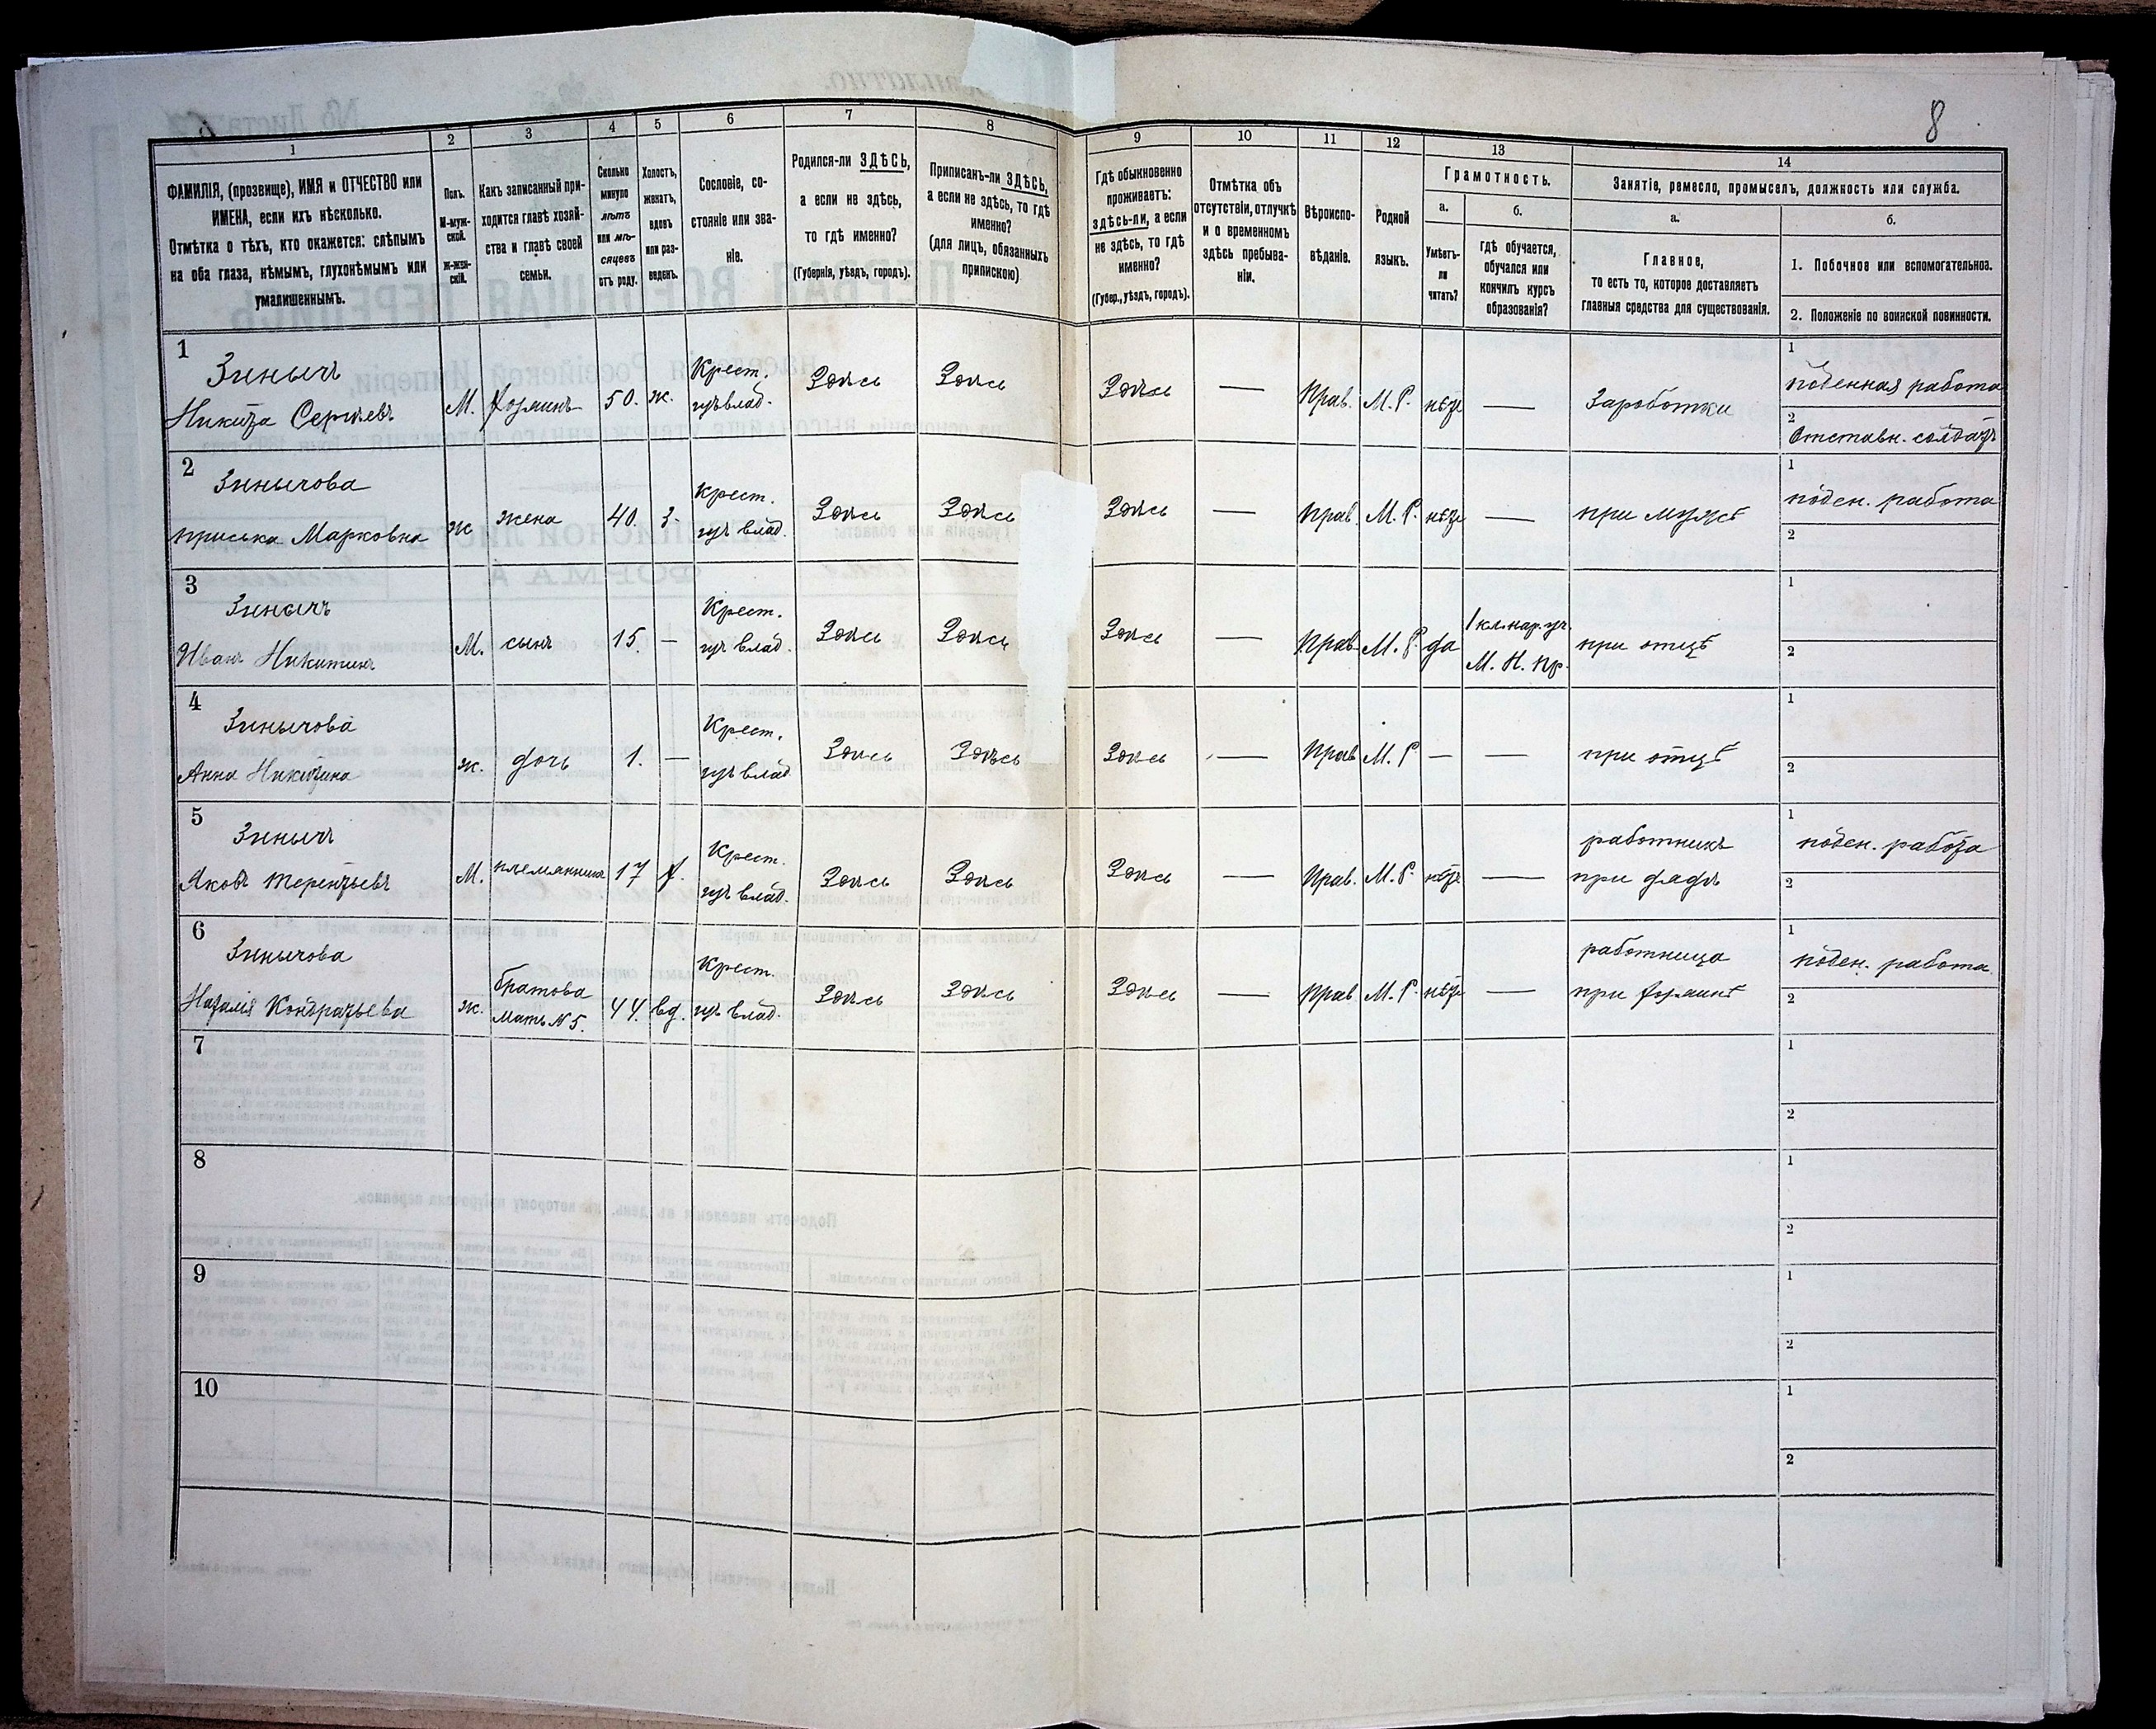 8
1 2 3 4 5 6 7 8 9 10 11 12 13 14
ФАМИЛІЯ, (прозвище), ИМЯ и ОТЧЕСТВО или
ИМЕНА, если ихъ нѣсколько.
Отмѣтка о тѣхъ, кто окажется: слѣпымъ
на оба глаза, нѣмымъ, глухонѣмымъ или
умалишеннымъ.
Полъ.
М-муж-
ской.
Ж-жен-
скій.
Какъ записанный при-
ходится главѣ хозяй-
ства и главѣ своей
семьи.
Сколько
минуло
лѣтъ
или мѣ-
сяцевъ
отъ роду.
Холостъ,
женатъ,
вдовъ
или раз-
веденъ.
Сословіе, со-
стояніе или зва-
ніе.
Родился-ли ЗДѢСЬ,
а если не здѣсь,
то гдѣ именно?
(Губернія, уѣздъ, городъ).
Приписанъ-ли ЗДѢСЬ,
а если не здѣсь, то гдѣ
именно?
(для лицъ, обязанныхъ
припискою)
Гдѣ обыкновенно
проживаетъ:
здѣсь-ли, а если
не здѣсь, то гдѣ
именно?
(Губер., уѣздъ, городъ).
Отмѣтка объ
отсутствіи, отлучкѣ
и о временномъ
здѣсь пребыва-
ніи.
Вѣроиспо-
вѣданіе.
Родной
языкъ.
Грамотность.
а.
Умѣетъ-
ли
читать?
б.
гдѣ обучается,
обучался или
кончилъ курсъ
образованія?
Занятіе, ремесло, промыселъ, должность или служба.
а.
Главное,
то есть то, которое доставляетъ
главныя средства для существованія.
б.
1. Побочное или вспомогательное.
2. Положеніе по воинской повинности.
1
Зинычъ
Никита Сергѣевъ
М. хозяинъ 50. ж.
Крест.
изъ влад.
Здѣсь Здѣсь Здѣсь — Прав. М. Р. нѣтъ — Заработки
1 поденная работа
2 Отставн. солдатъ
2
Зинычова
Приська Марковна
ж жена 40. з.
Крест.
изъ влад.
Здѣсь Здѣсь Здѣсь — Прав. М. Р. нѣтъ — при мужѣ
1 поден. работа
2
3
Зинычъ
Иванъ Никитинъ
М. сынъ 15. —
Крест.
изъ влад.
Здѣсь Здѣсь Здѣсь — Прав М. Р. да
1 кл. нар. уч.
М. Н. Пр.
при отцѣ
1
2
4
Зинычова
Анна Никитина
ж. дочь 1. —
Крест.
изъ влад
Здѣсь Здѣсь Здѣсь — Прав М. Р — — при отцѣ
1
2
5
Зинычъ
Яковъ Терентьевъ
М. племянникъ 17 х.
Крест.
изъ влад.
Здѣсь Здѣсь Здѣсь — Прав. М. Р. нѣтъ —
работникъ
при дядѣ
1 поден. работа
2
6
Зинычова
Наталія Кондратьева
ж.
братова
Мать N 5.
44. вд.
Крест.
изъ влад.
Здѣсь Здѣсь Здѣсь — Прав М. Р. нѣтъ —
работница
при хозяинѣ
1 поден. работа
2
7
1
2
8
1
2
9
1
2
10
1
2